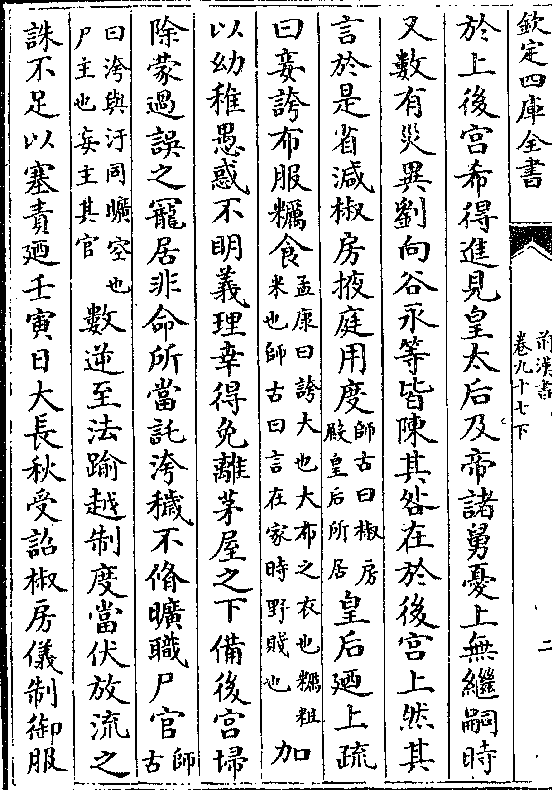 欽定四庫全書
前漢書
卷九十七下
二
於上後宫希得進見皇太后及帝諸舅憂上無繼嗣時
又數有災異劉向谷永等皆陳其咎在於後宫上然其
言於是省減椒房掖庭用度師古曰椒房殿皇后所居皇后廼上疏
曰妾誇布服糲食孟康曰誇大也大布之衣也糲粗米也師古曰言在家時野賤也加
以幼稚愚惑不明義理幸得免離茅屋之下備後宫埽
除蒙過誤之寵居非命所當託洿穢不脩曠職尸官師古
曰洿與汙同曠空也尸主也妄主其官數逆至法踰越制度當伏放流之
誅不足以塞責廼壬寅日大長秋受詔椒房儀制御服